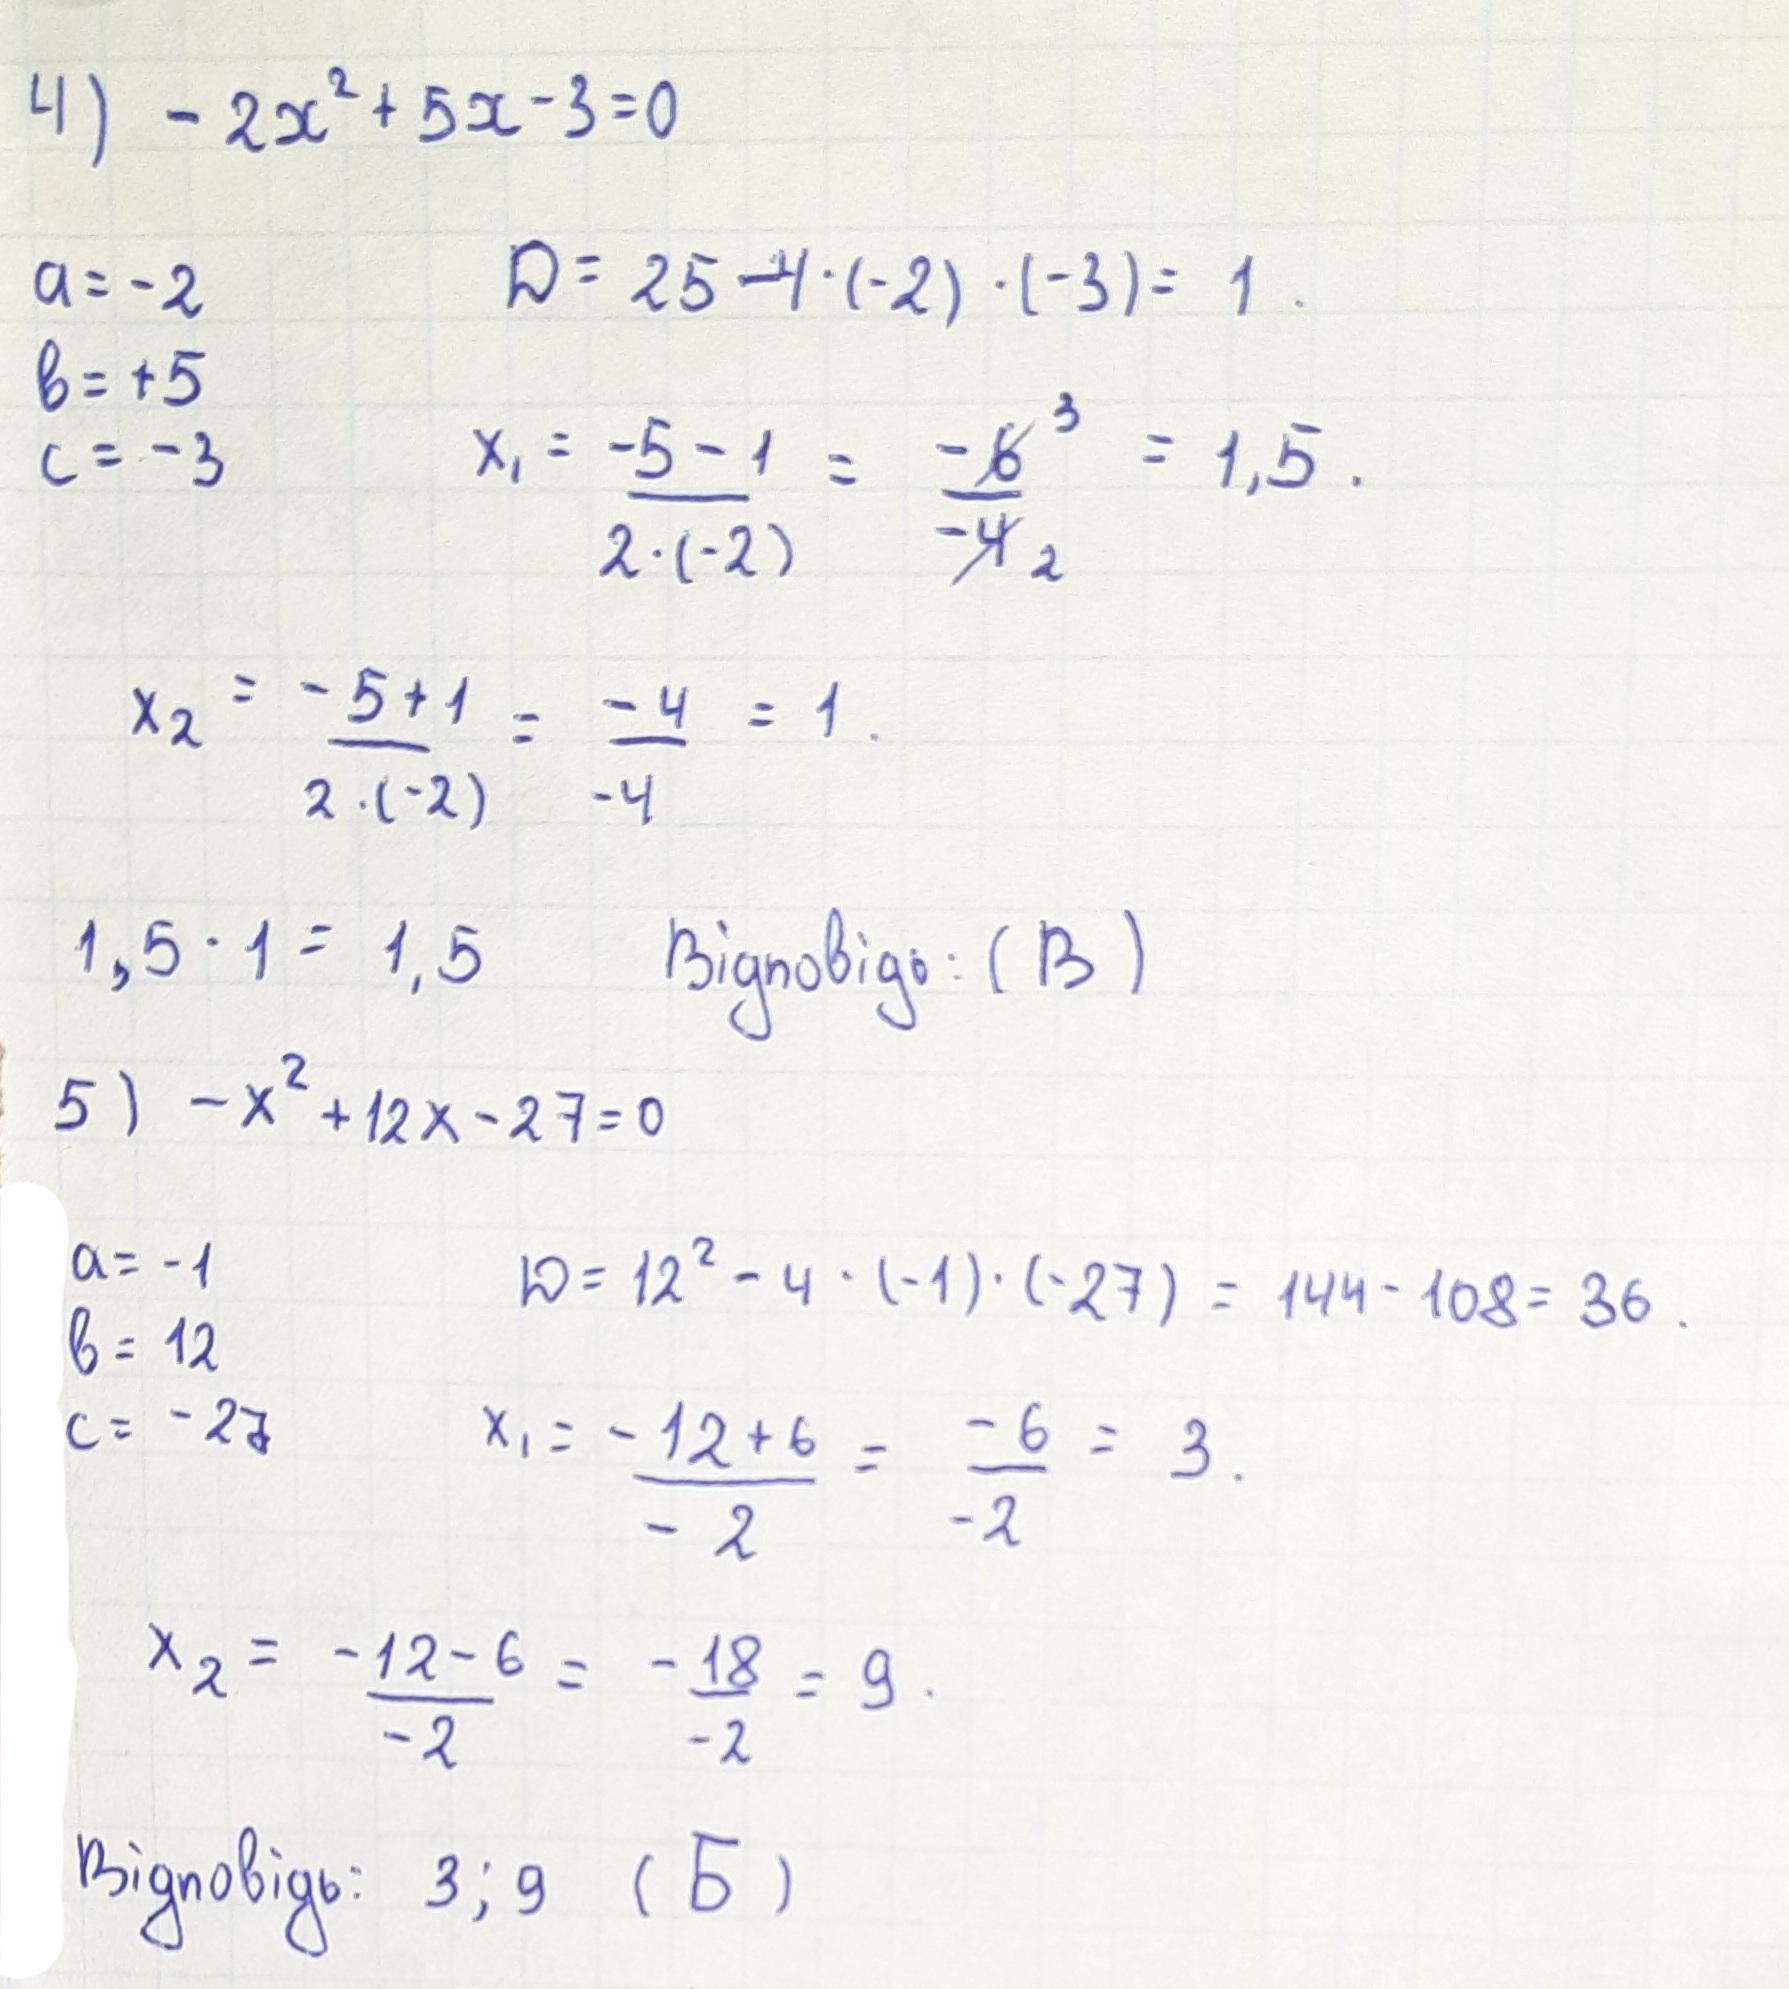 4) -2x² + 5x - 3 = 0
a = -2
D = 25 - 4 · (-2) · (-3) = 1.
b = +5
c = -3
x₁ = (-5 - 1)/(2 · (-2)) = (-6 3)/(-4 2) = 1,5.
x₂ = (-5 + 1)/(2 · (-2)) = (-4)/(-4) = 1.
1,5 · 1 = 1,5 Відповідь: (В)
5) -x² + 12x - 27 = 0
a = -1
D = 12² - 4 · (-1) · (-27) = 144 - 108 = 36.
b = 12
c = -27
x₁ = (-12 + 6)/(-2) = (-6)/(-2) = 3.
x₂ = (-12 - 6)/(-2) = (-18)/(-2) = 9.
Відповідь: 3; 9 (Б)